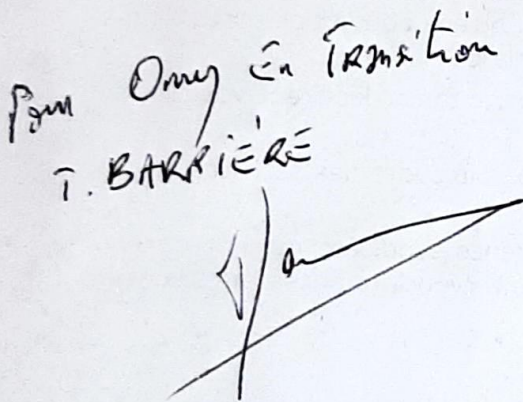 Pour Orry En Transition
T. BARRIÈRE